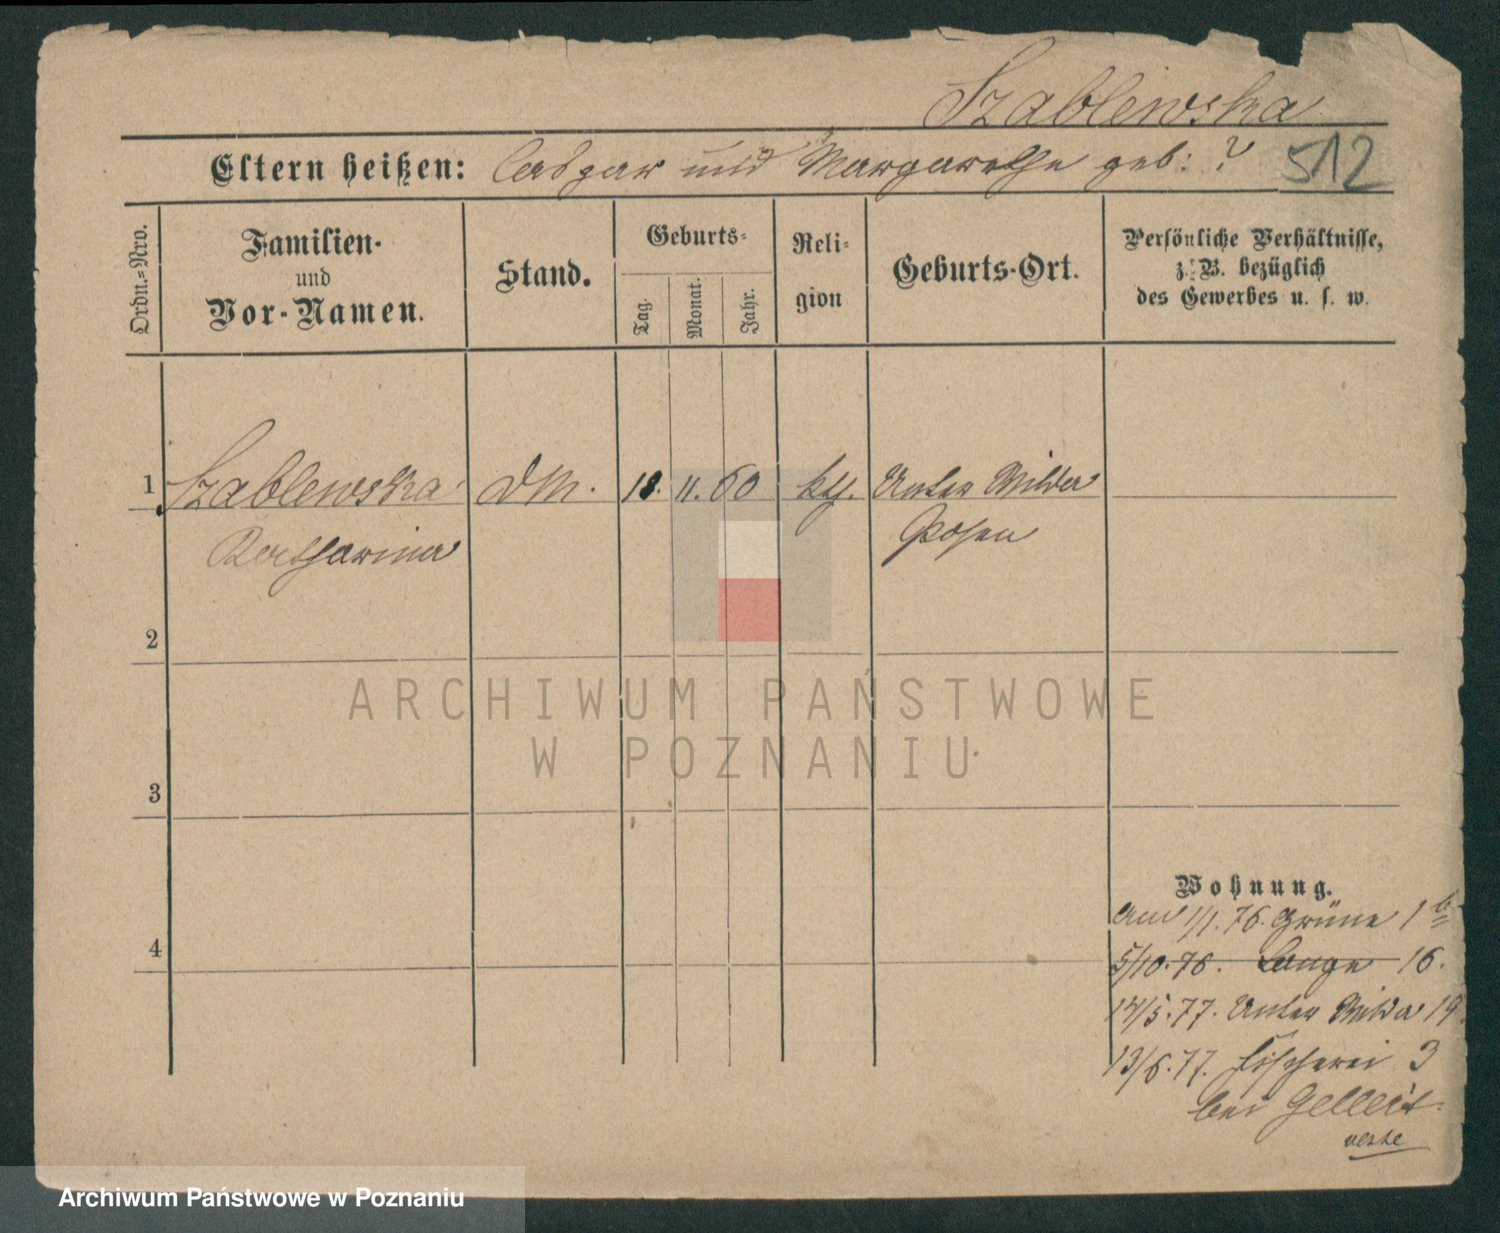 Szablewska
Eltern heißen: Casgar und Margarethe geb: ?
512
Ordn.-Nro.
Familien-
und
Vor-Namen.
Stand.
Geburts-
Tag.
Monat.
Jahr.
Reli-
gion
Geburts-Ort.
Persönliche Verhältnisse,
z. B. bezüglich
des Gewerbes u. s. w.
1 Szablewska DM. 18. 11. 60 kth. Unter Wilda
Katharina Posen
2
ARCHIWUM PAŃSTWOWE
W POZNANIU
3
Wohnung.
4
am 1/1. 76. Grüne 1 b
5/10. 76. Lange 16.
14/5. 77. Unter Wilda 19.
13/6. 77. Fischerei 3
bei Gellert
Archiwum Państwowe w Poznaniu